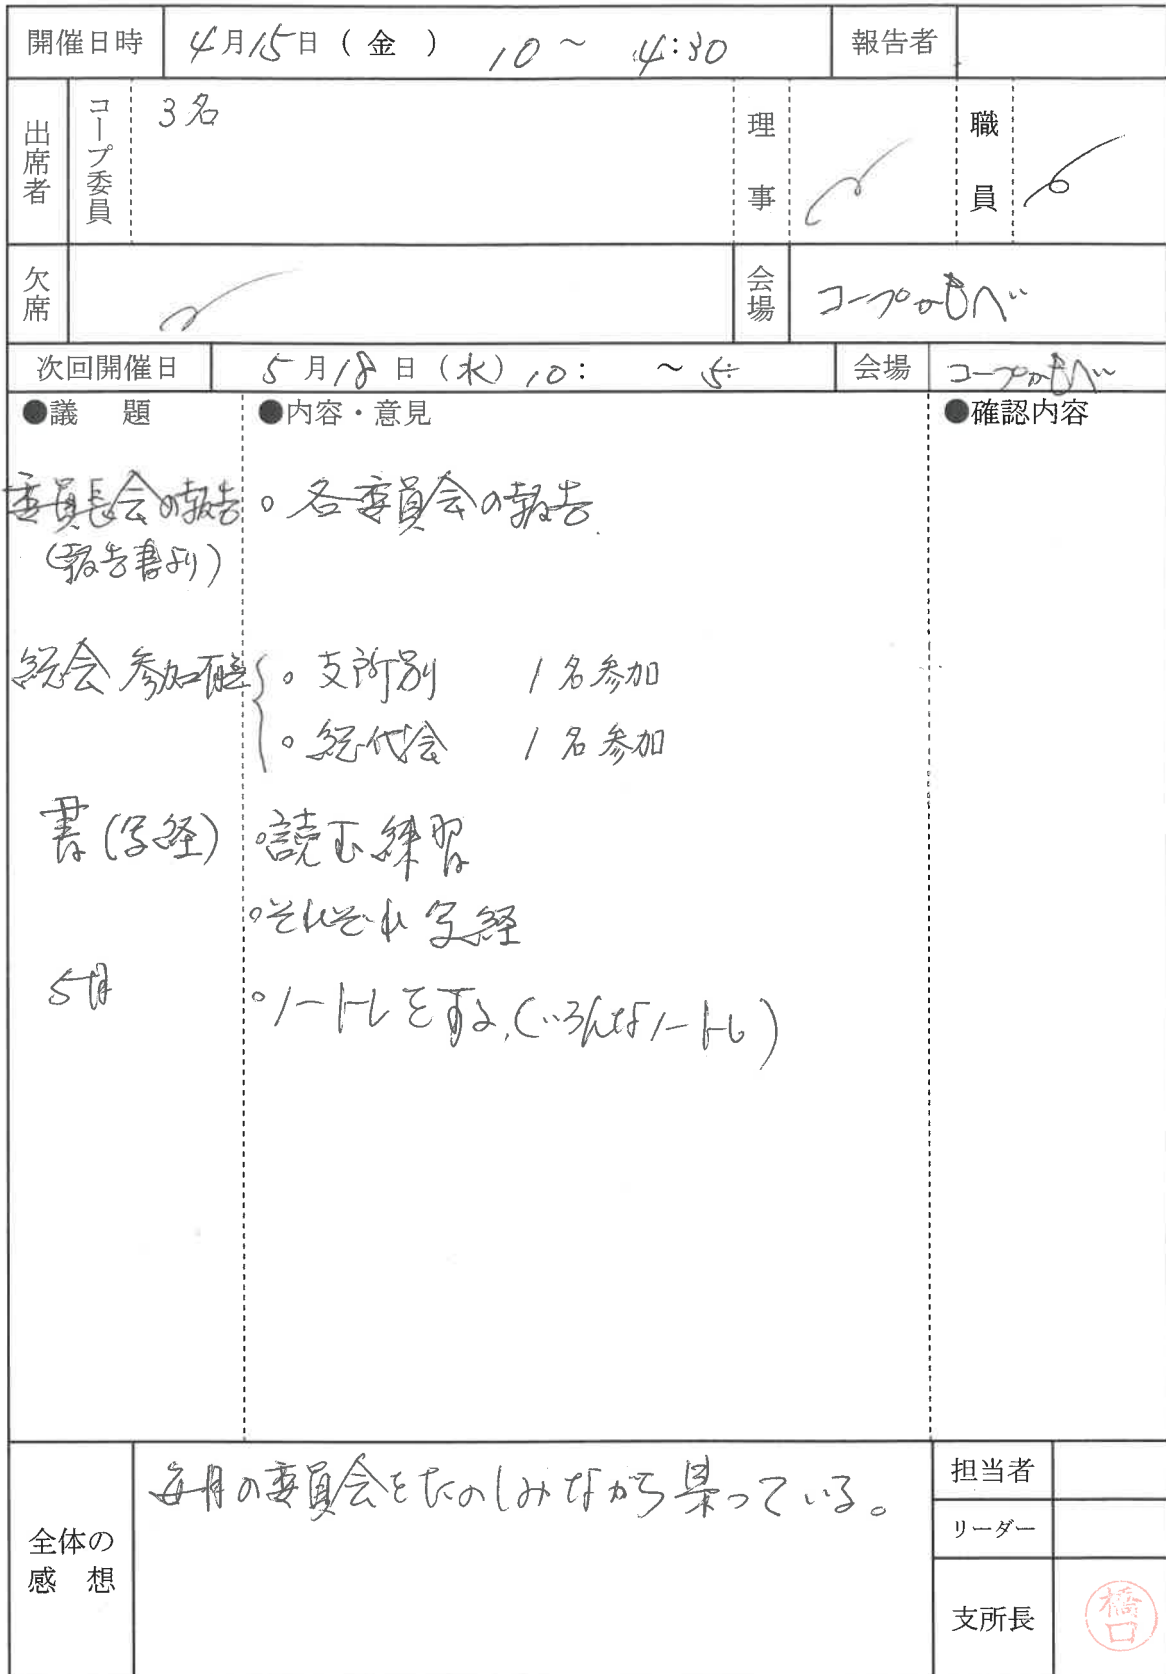 開催日時 4月15日(金) 10～ 4:30 報告者
出席者 コープ委員 3名 理事 職員
欠席 会場 コープかもべ
次回開催日 5月18日(水) 10: ～5: 会場 コープかもべ
●議 題 ●内容・意見 ●確認内容
委員長会の報告 ○各委員会の報告
(報告書より)
総会参加確認 ○支所別 1名参加
○総代会 1名参加
書(写経) ○読む練習
○それぞれ写経
5月 ○ノートレをする。(いろんなノートレ)
全体の感想 毎月の委員会をたのしみながら集っている。
担当者
リーダー
支所長 橋口